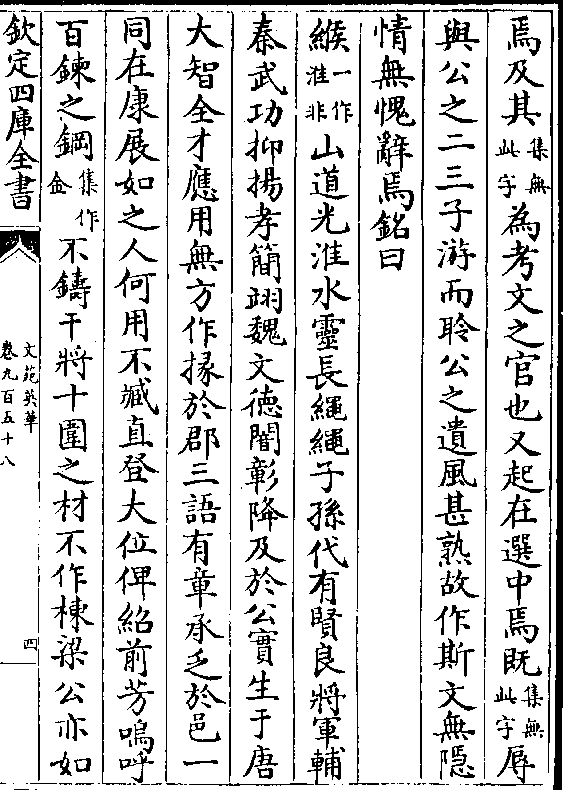 焉及其集無此字為考文之官也又起在選中焉既集無此字辱
與公之二三子游而聆公之遺風甚熟故作斯文無隠
情無愧辭焉銘曰
緱一作淮非山道光淮水靈長繩繩子孫代有賢良將軍輔
秦武功抑揚孝簡翊魏文德闇彰降及於公實生于唐
大智全才應用無方作掾於郡三語有章承乏於邑一
同在康展如之人何用不臧直登大位俾紹前芳嗚呼
百鍊之鋼集作金不鑄干將十圍之材不作棟梁公亦如
欽定四庫全書
文苑英華
卷九百五十八
四